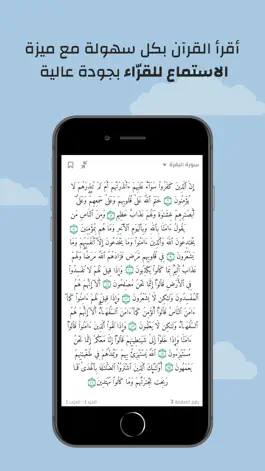 أقرأ القرآن بكل سهولة مع ميزة
الاستماع للقرّاء بجودة عالية
سورة البقرة
إِنَّ ٱلَّذِينَ كَفَرُوا۟ سَوَآءٌ عَلَيْهِمْ ءَأَنذَرْتَهُمْ أَمْ لَمْ تُنذِرْهُمْ لَا
يُؤْمِنُونَ ۝ خَتَمَ ٱللَّهُ عَلَىٰ قُلُوبِهِمْ وَعَلَىٰ سَمْعِهِمْ ۖ وَعَلَىٰٓ
أَبْصَٰرِهِمْ غِشَٰوَةٌ ۖ وَلَهُمْ عَذَابٌ عَظِيمٌ ۝ وَمِنَ ٱلنَّاسِ مَن
يَقُولُ ءَامَنَّا بِٱللَّهِ وَبِٱلْيَوْمِ ٱلْءَاخِرِ وَمَا هُم بِمُؤْمِنِينَ ۝
يُخَٰدِعُونَ ٱللَّهَ وَٱلَّذِينَ ءَامَنُوا۟ وَمَا يَخْدَعُونَ إِلَّآ أَنفُسَهُمْ وَمَا
يَشْعُرُونَ ۝ فِى قُلُوبِهِم مَّرَضٌ فَزَادَهُمُ ٱللَّهُ مَرَضًا ۖ وَلَهُمْ
عَذَابٌ أَلِيمٌۢ بِمَا كَانُوا۟ يَكْذِبُونَ ۝ وَإِذَا قِيلَ لَهُمْ لَا تُفْسِدُوا۟
فِى ٱلْأَرْضِ قَالُوٓا۟ إِنَّمَا نَحْنُ مُصْلِحُونَ ۝ أَلَآ إِنَّهُمْ هُمُ
ٱلْمُفْسِدُونَ وَلَٰكِن لَّا يَشْعُرُونَ ۝ وَإِذَا قِيلَ لَهُمْ ءَامِنُوا۟ كَمَآ
ءَامَنَ ٱلنَّاسُ قَالُوٓا۟ أَنُؤْمِنُ كَمَآ ءَامَنَ ٱلسُّفَهَآءُ ۗ أَلَآ إِنَّهُمْ هُمُ
ٱلسُّفَهَآءُ وَلَٰكِن لَّا يَعْلَمُونَ ۝ وَإِذَا لَقُوا۟ ٱلَّذِينَ ءَامَنُوا۟ قَالُوٓا۟
ءَامَنَّا وَإِذَا خَلَوْا۟ إِلَىٰ شَيَٰطِينِهِمْ قَالُوٓا۟ إِنَّا مَعَكُمْ إِنَّمَا نَحْنُ
مُسْتَهْزِءُونَ ۝ ٱللَّهُ يَسْتَهْزِئُ بِهِمْ وَيَمُدُّهُمْ فِى طُغْيَٰنِهِمْ
يَعْمَهُونَ ۝ أُو۟لَٰٓئِكَ ٱلَّذِينَ ٱشْتَرَوُا۟ ٱلضَّلَٰلَةَ بِٱلْهُدَىٰ فَمَا
رَبِحَت تِّجَٰرَتُهُمْ وَمَا كَانُوا۟ مُهْتَدِينَ ۝
رقم الصفحة 3
الجزء 1 - الحزب 1